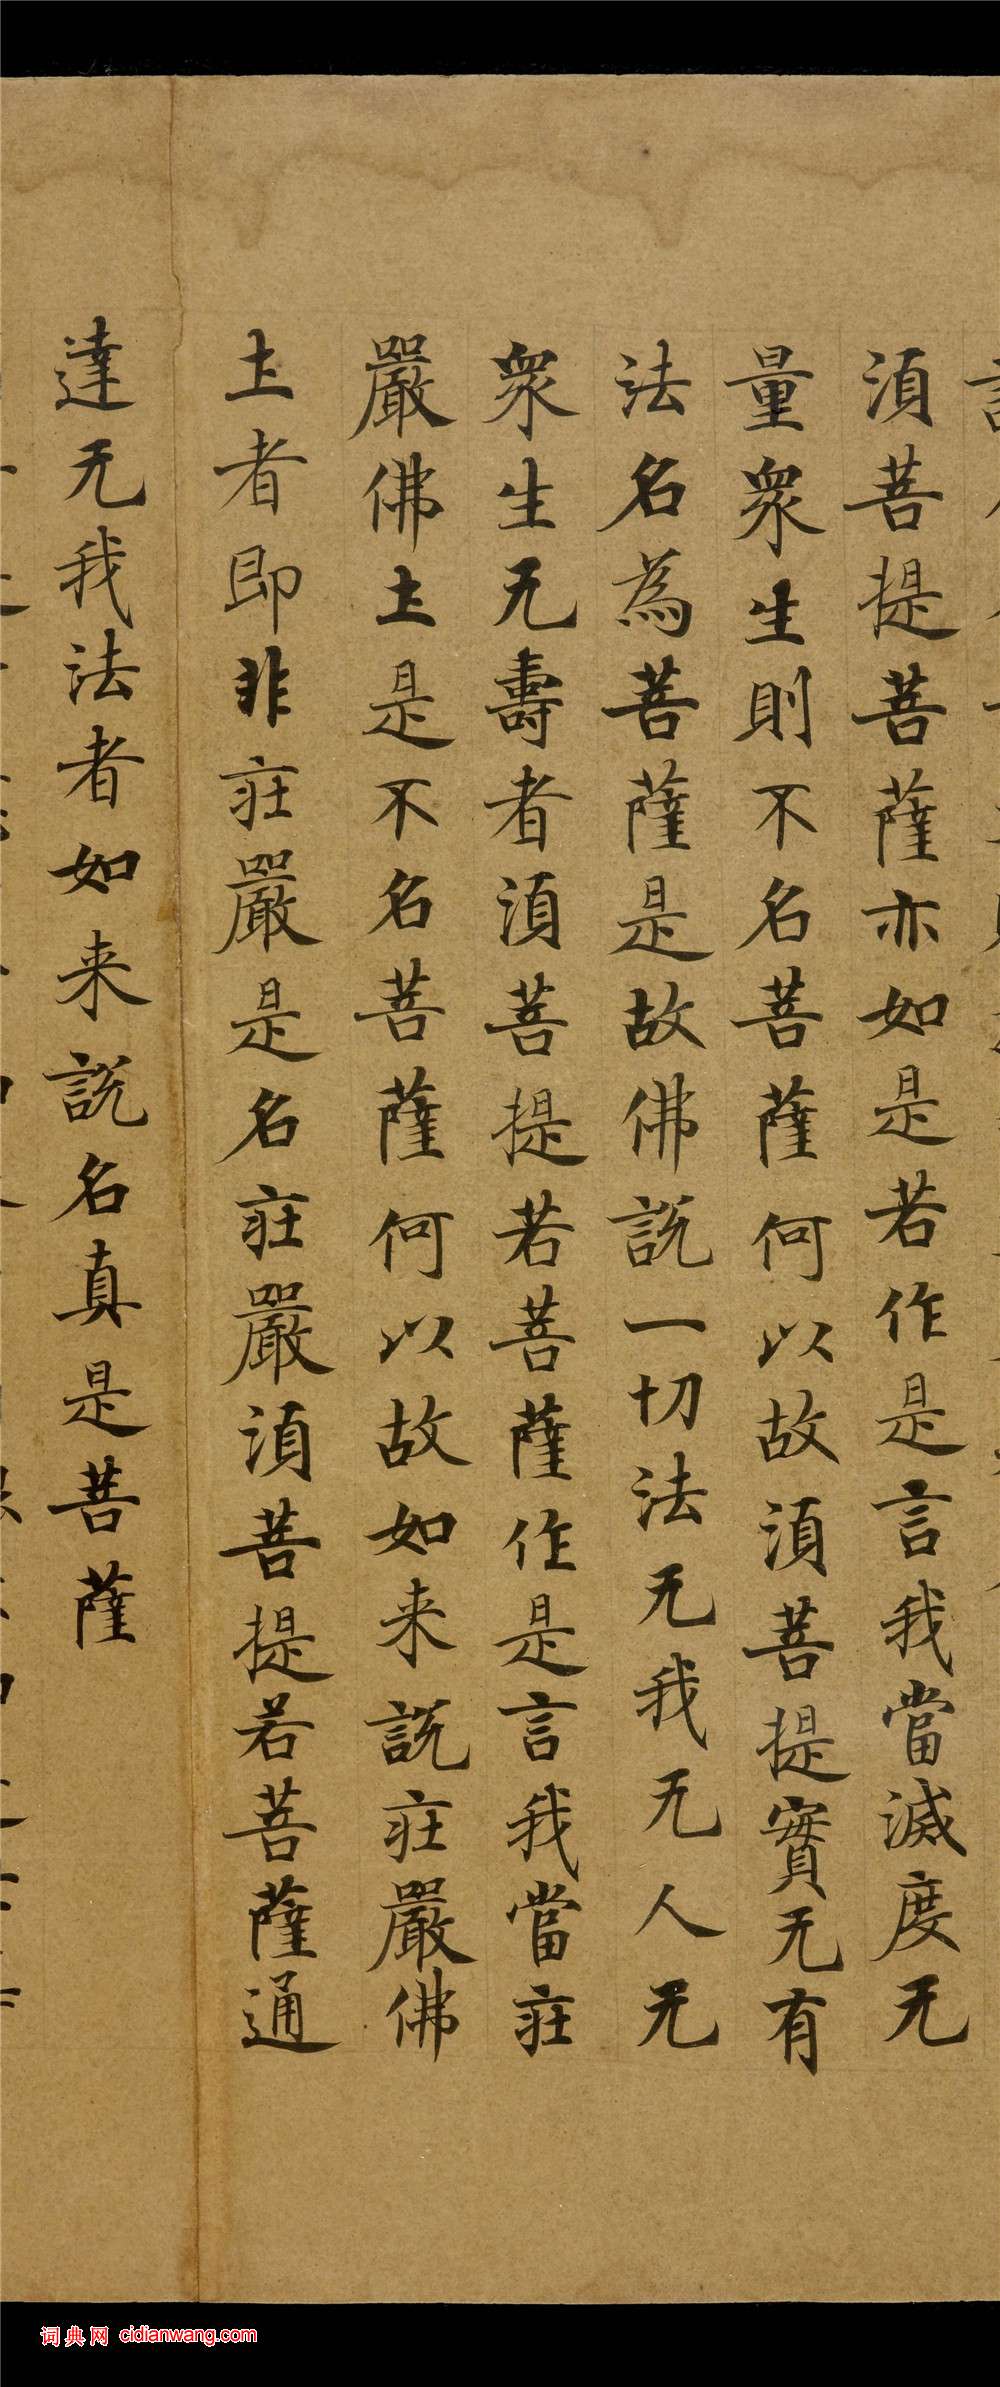 湏菩提菩薩亦如是若作是言我當滅度无
量衆生則不名菩薩何以故湏菩提實无有
法名為菩薩是故佛說一切法无我无人无
衆生无壽者湏菩提若菩薩作是言我當莊
嚴佛土是不名菩薩何以故如来說莊嚴佛
土者即非莊嚴是名莊嚴湏菩提若菩薩通
達无我法者如来說名真是菩薩
词典网 cidianwang.com